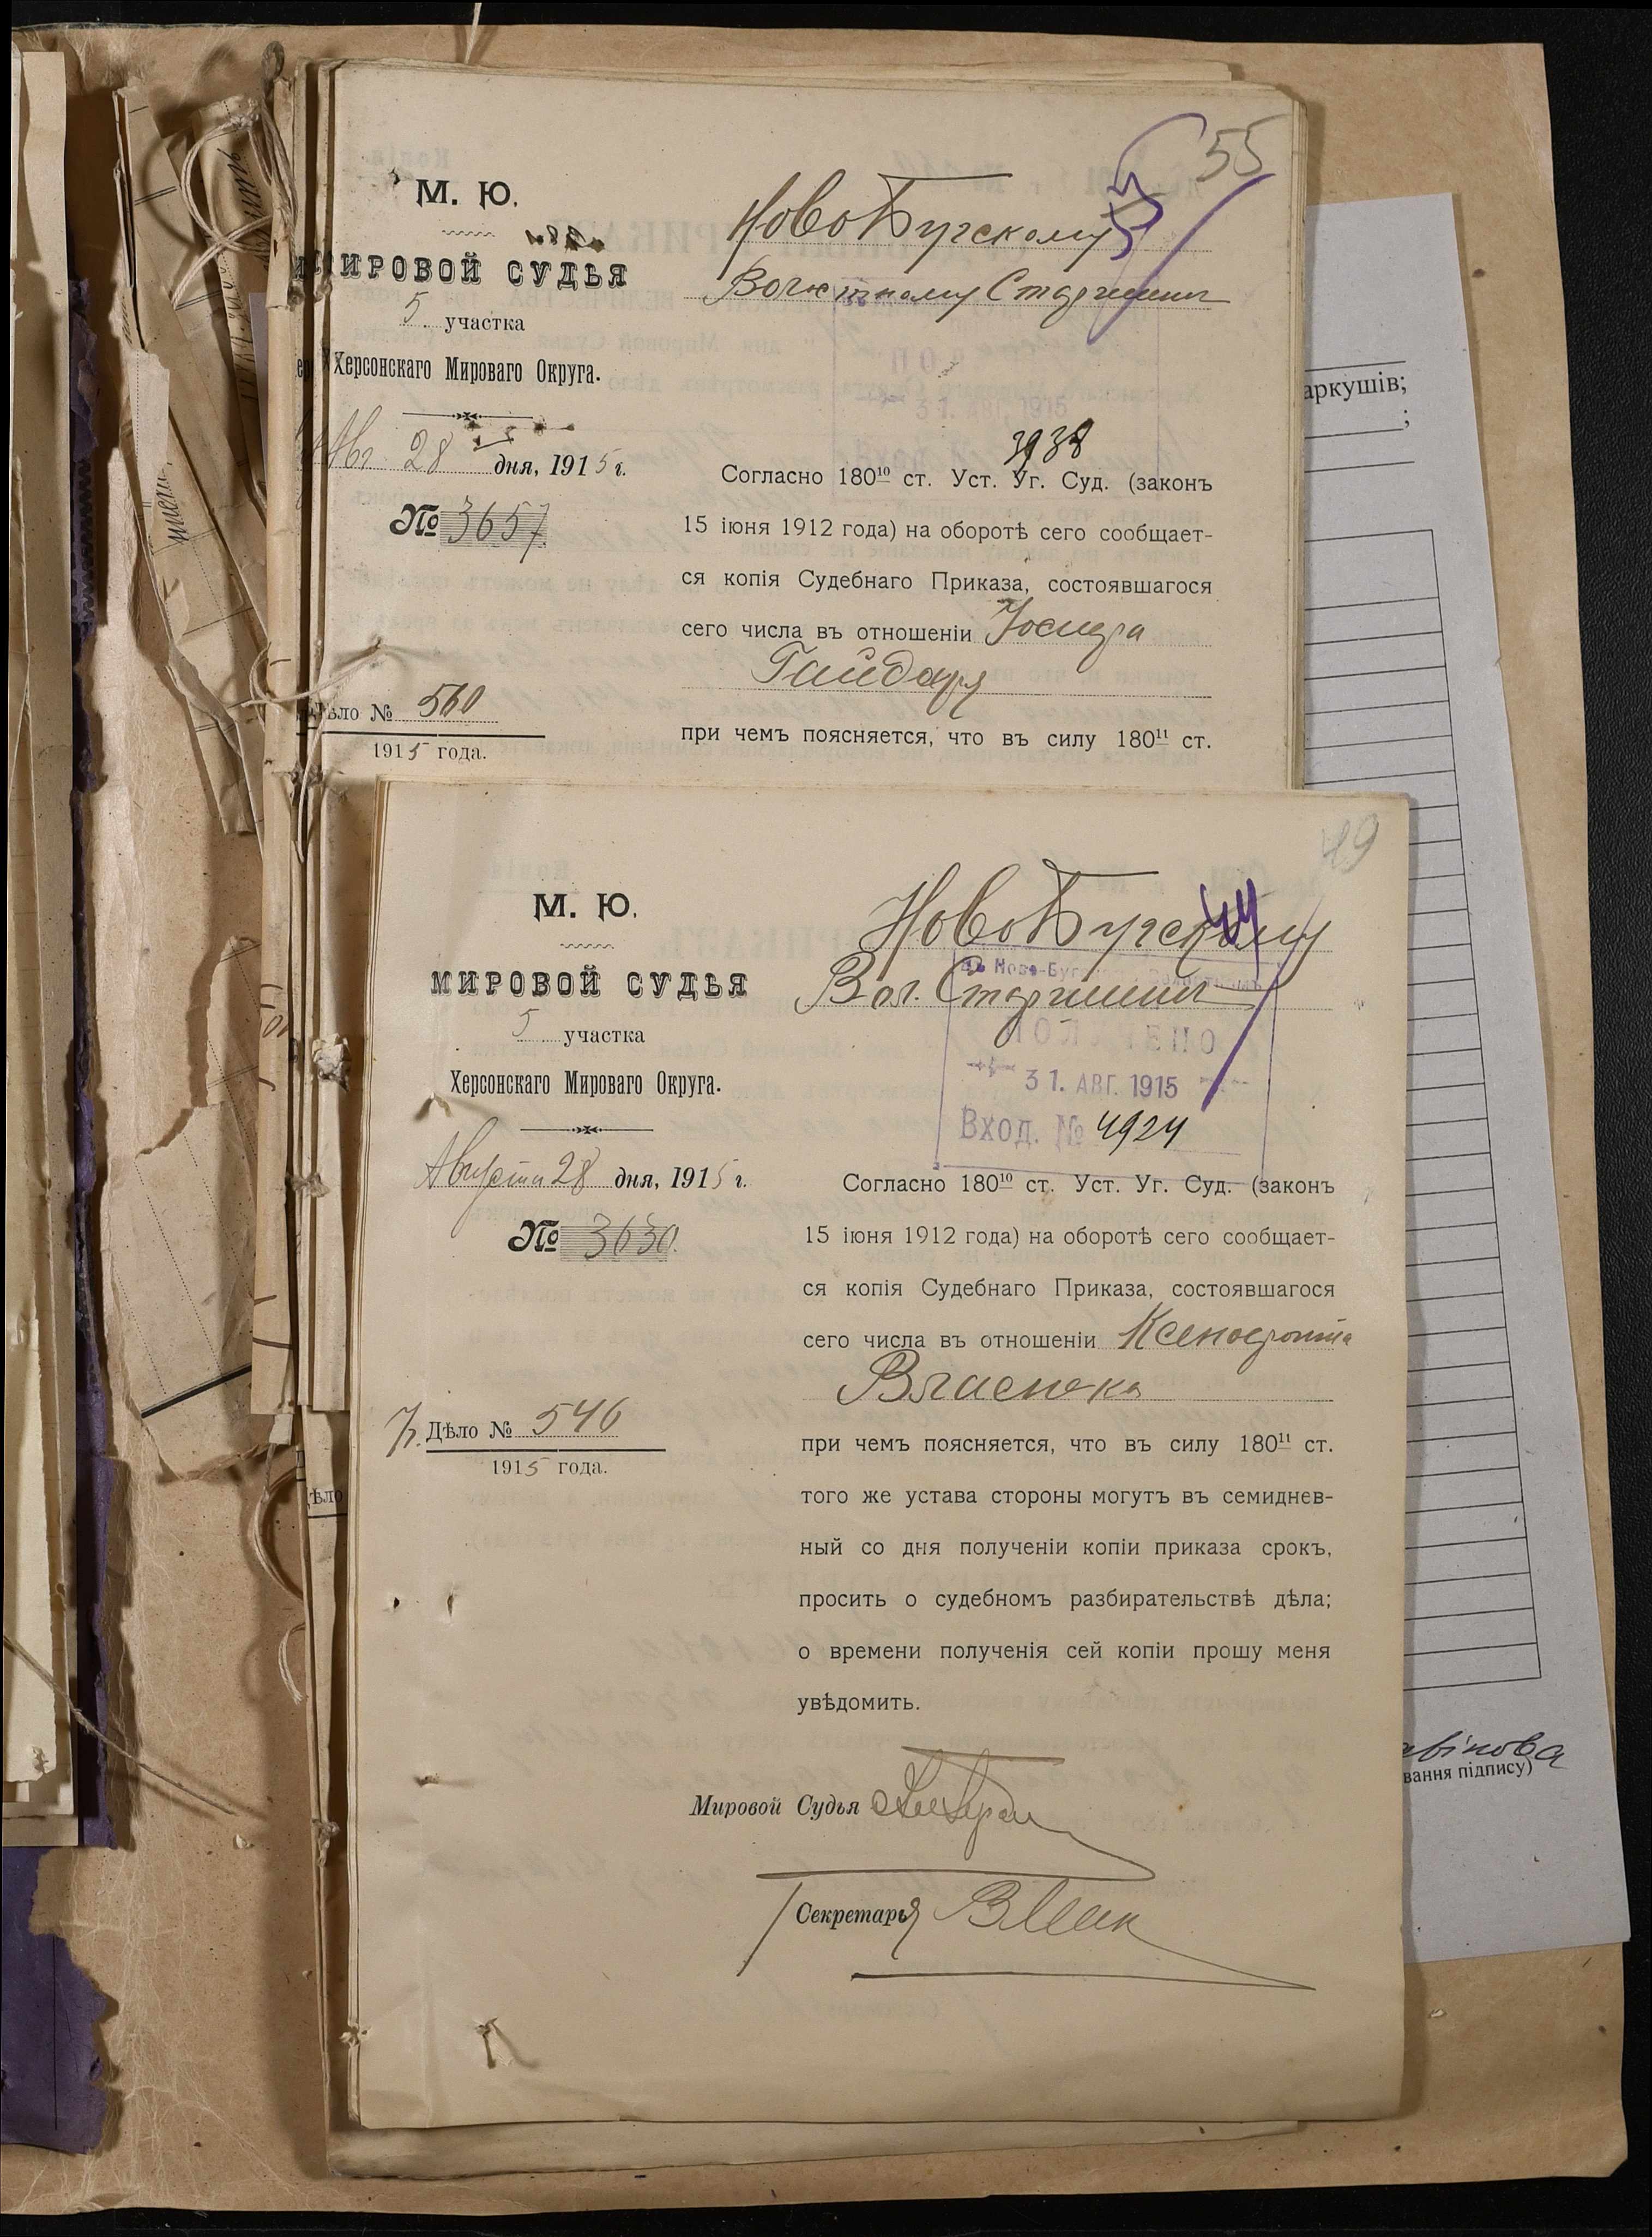 55
М. Ю.
МИРОВОЙ СУДЬЯ
5 участка
Херсонскаго Мироваго Округа.
Авг 28 дня, 1915 г.
№ 3657
Дѣло № 560
1915 года.
НовоБугскому
Волостному Старшинѣ
31. АВГ. 1915
3938
Согласно 180¹⁰ ст. Уст. Уг. Суд. (законъ
15 іюня 1912 года) на оборотѣ сего сообщает-
ся копія Судебнаго Приказа, состоявшагося
сего числа въ отношеніи Іосифа
Гайдаря
при чемъ поясняется, что въ силу 180¹¹ ст.
аркушів;
;
49
М. Ю.
МИРОВОЙ СУДЬЯ
5 участка
Херсонскаго Мироваго Округа.
Августа 28 дня, 1915 г.
№ 3630.
Дѣло № 546
1915 года.
НовоБугскому
44
Вол. Старшинѣ
ПОЛУЧЕНО
31. АВГ. 1915
Вход. № 4924
Согласно 180¹⁰ ст. Уст. Уг. Суд. (законъ
15 іюня 1912 года) на оборотѣ сего сообщает-
ся копія Судебнаго Приказа, состоявшагося
сего числа въ отношеніи Ксенофонта
Власенка
при чемъ поясняется, что въ силу 180¹¹ ст.
того же устава стороны могутъ въ семиднев-
ный со дня полученіи копіи приказа срокъ,
просить о судебномъ разбирательствѣ дѣла;
о времени полученія сей копіи прошу меня
увѣдомить.
Мировой Судья
Секретарь
дѣло
вання підпису)